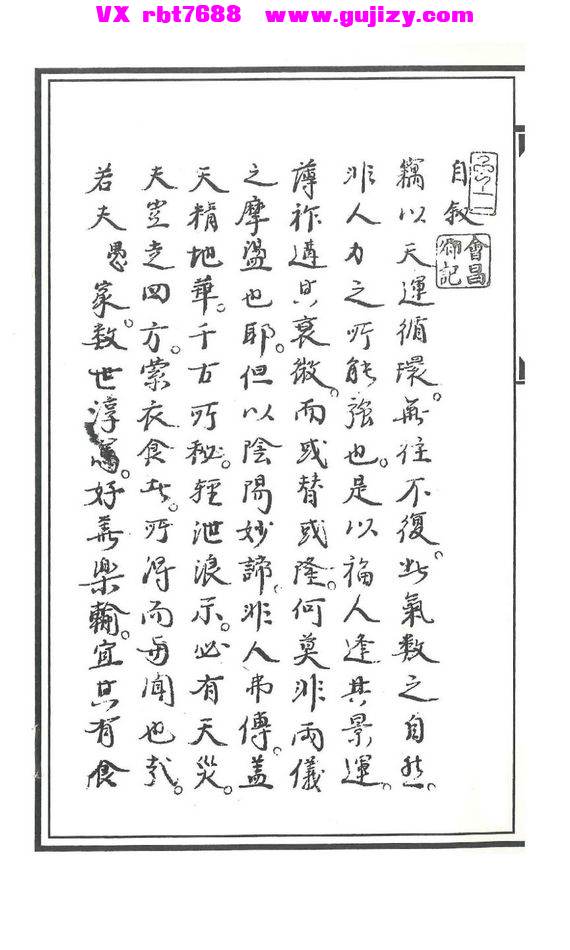 VX rbt7688 www.gujizy.com
自叙
會昌
御記
竊以天運循環。無往不復。此氣數之自然。
非人力之所能強也。是以福人逢其景運。
薄祚遘其衰微。而或替或隆。何莫非兩儀
之摩盪也耶。但以陰陽妙諦。非人弗傳。蓋
天精地華。千古所秘。輕泄浪示。必有天災。
夫豈走四方。縈衣食者。所得而與聞也哉。
若夫愚家。數世淳篤。好善樂輸。宜其有食